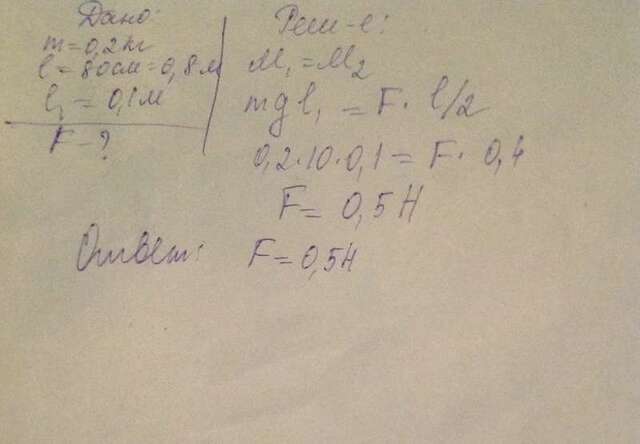 Дано:
m = 0,2 кг
l = 80см = 0,8 м
l₁ = 0,1 м
F - ?
Реш-е:
M₁ = M₂
mgl₁ = F · l/2
0,2·10·0,1 = F · 0,4
F = 0,5 Н
Ответ: F = 0,5Н